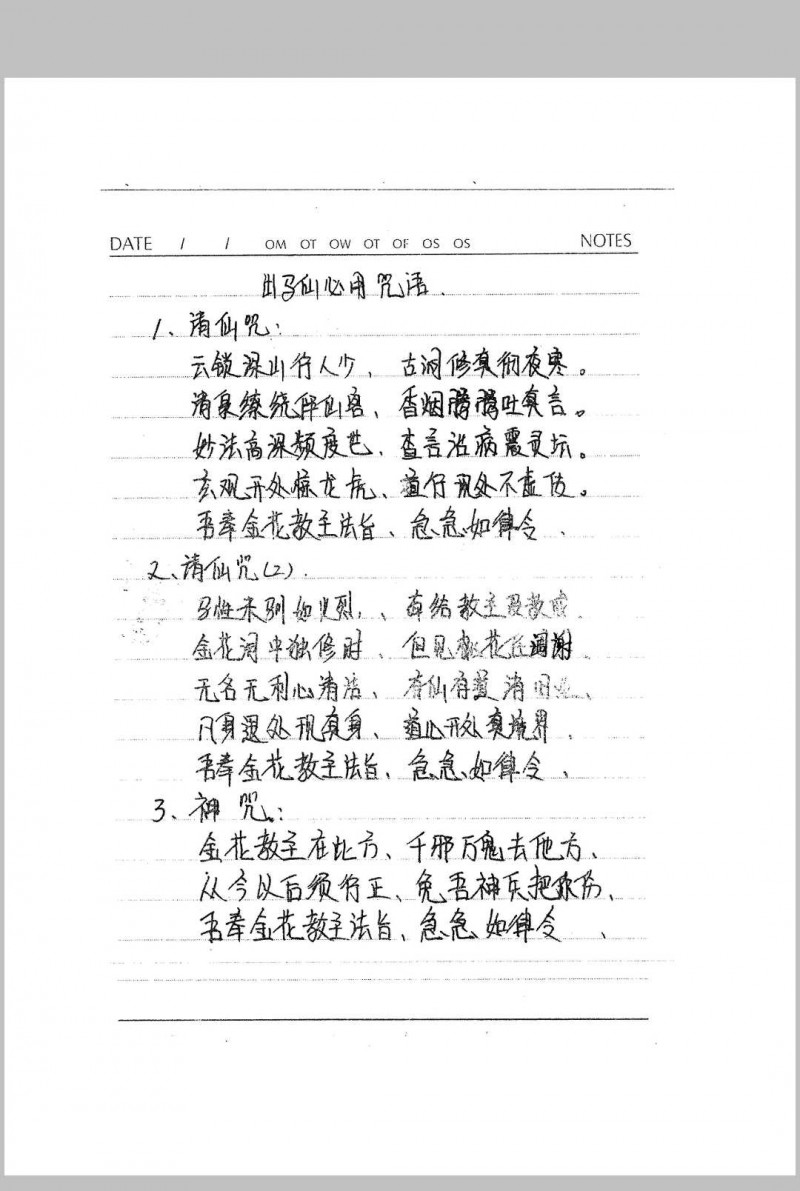 DATE / / OM OT OW OT OF OS OS NOTES
出马仙必用咒语.
1、请仙咒:
云锁深山行人少、古洞修真彻夜寒。
清泉缭绕伴仙客、香烟腾腾吐真言。
妙法高深频度世、查言治病震灵坛。
玄观开处惊龙虎、道行现处不虚传。
吾奉金花教主法旨、急急如律令、
2、请仙咒(2).
马性未驯如火烈、教主
金花洞中独修时、但见桃花 凋谢
无名无利心清洁、有仙有 清
凡身退处现真身、道心开处真境界、
吾奉金花教主法旨、急急如律令、
3、神咒:
金花教主在此方、千邪万鬼去他方、
从今以后须行正、免吾神兵把你伤、
吾奉金花教主法旨、急急如律令、